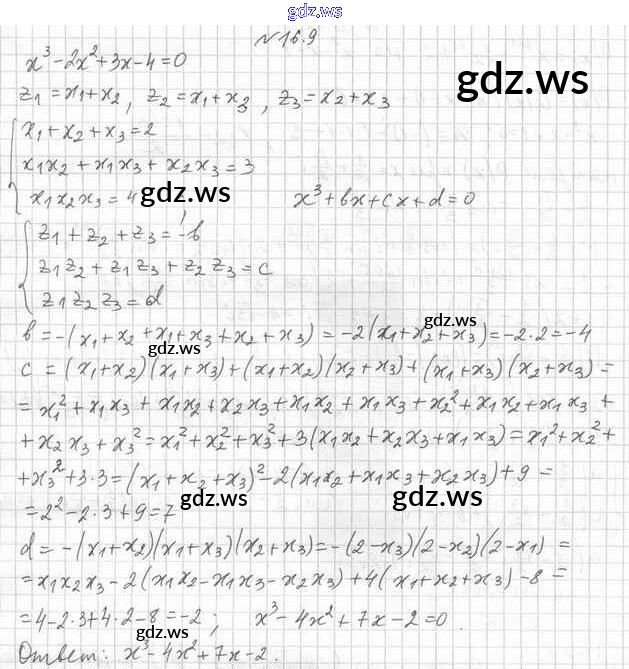 gdz.ws
№16.9
x³-2x²+3x-4=0
gdz.ws
z₁=x₁+x₂, z₂=x₁+x₃, z₃=x₂+x₃
x₁+x₂+x₃=2
x₁x₂+x₁x₃+x₂x₃=3
x₁x₂x₃=4 x³+bx+cx+d=0
gdz.ws
z₁+z₂+z₃=-b
z₁z₂+z₁z₃+z₂z₃=c
z₁z₂z₃=d
gdz.ws
b=-(x₁+x₂+x₁+x₃+x₂+x₃)=-2(x₁+x₂+x₃)=-2·2=-4
gdz.ws
c=(x₁+x₂)(x₁+x₃)+(x₁+x₂)(x₂+x₃)+(x₁+x₃)(x₂+x₃)=
=x₁²+x₁x₃+x₁x₂+x₂x₃+x₁x₂+x₁x₃+x₂²+x₁x₂+x₁x₃+
+x₂x₃+x₃²=x₁²+x₂²+x₃²+3(x₁x₂+x₂x₃+x₁x₃)=x₁²+x₂²+
+x₃²+3·3=(x₁+x₂+x₃)²-2(x₁x₂+x₁x₃+x₂x₃)+9=
=2²-2·3+9=7
gdz.ws gdz.ws
d=-(x₁+x₂)(x₁+x₃)(x₂+x₃)=-(2-x₃)(2-x₂)(2-x₁)=
=x₁x₂x₃-2(x₁x₂-x₁x₃-x₂x₃)+4(x₁+x₂+x₃)-8=
=4-2·3+4·2-8=-2; x³-4x²+7x-2=0.
gdz.ws
Ответ: x³-4x²+7x-2.
gdz.ws